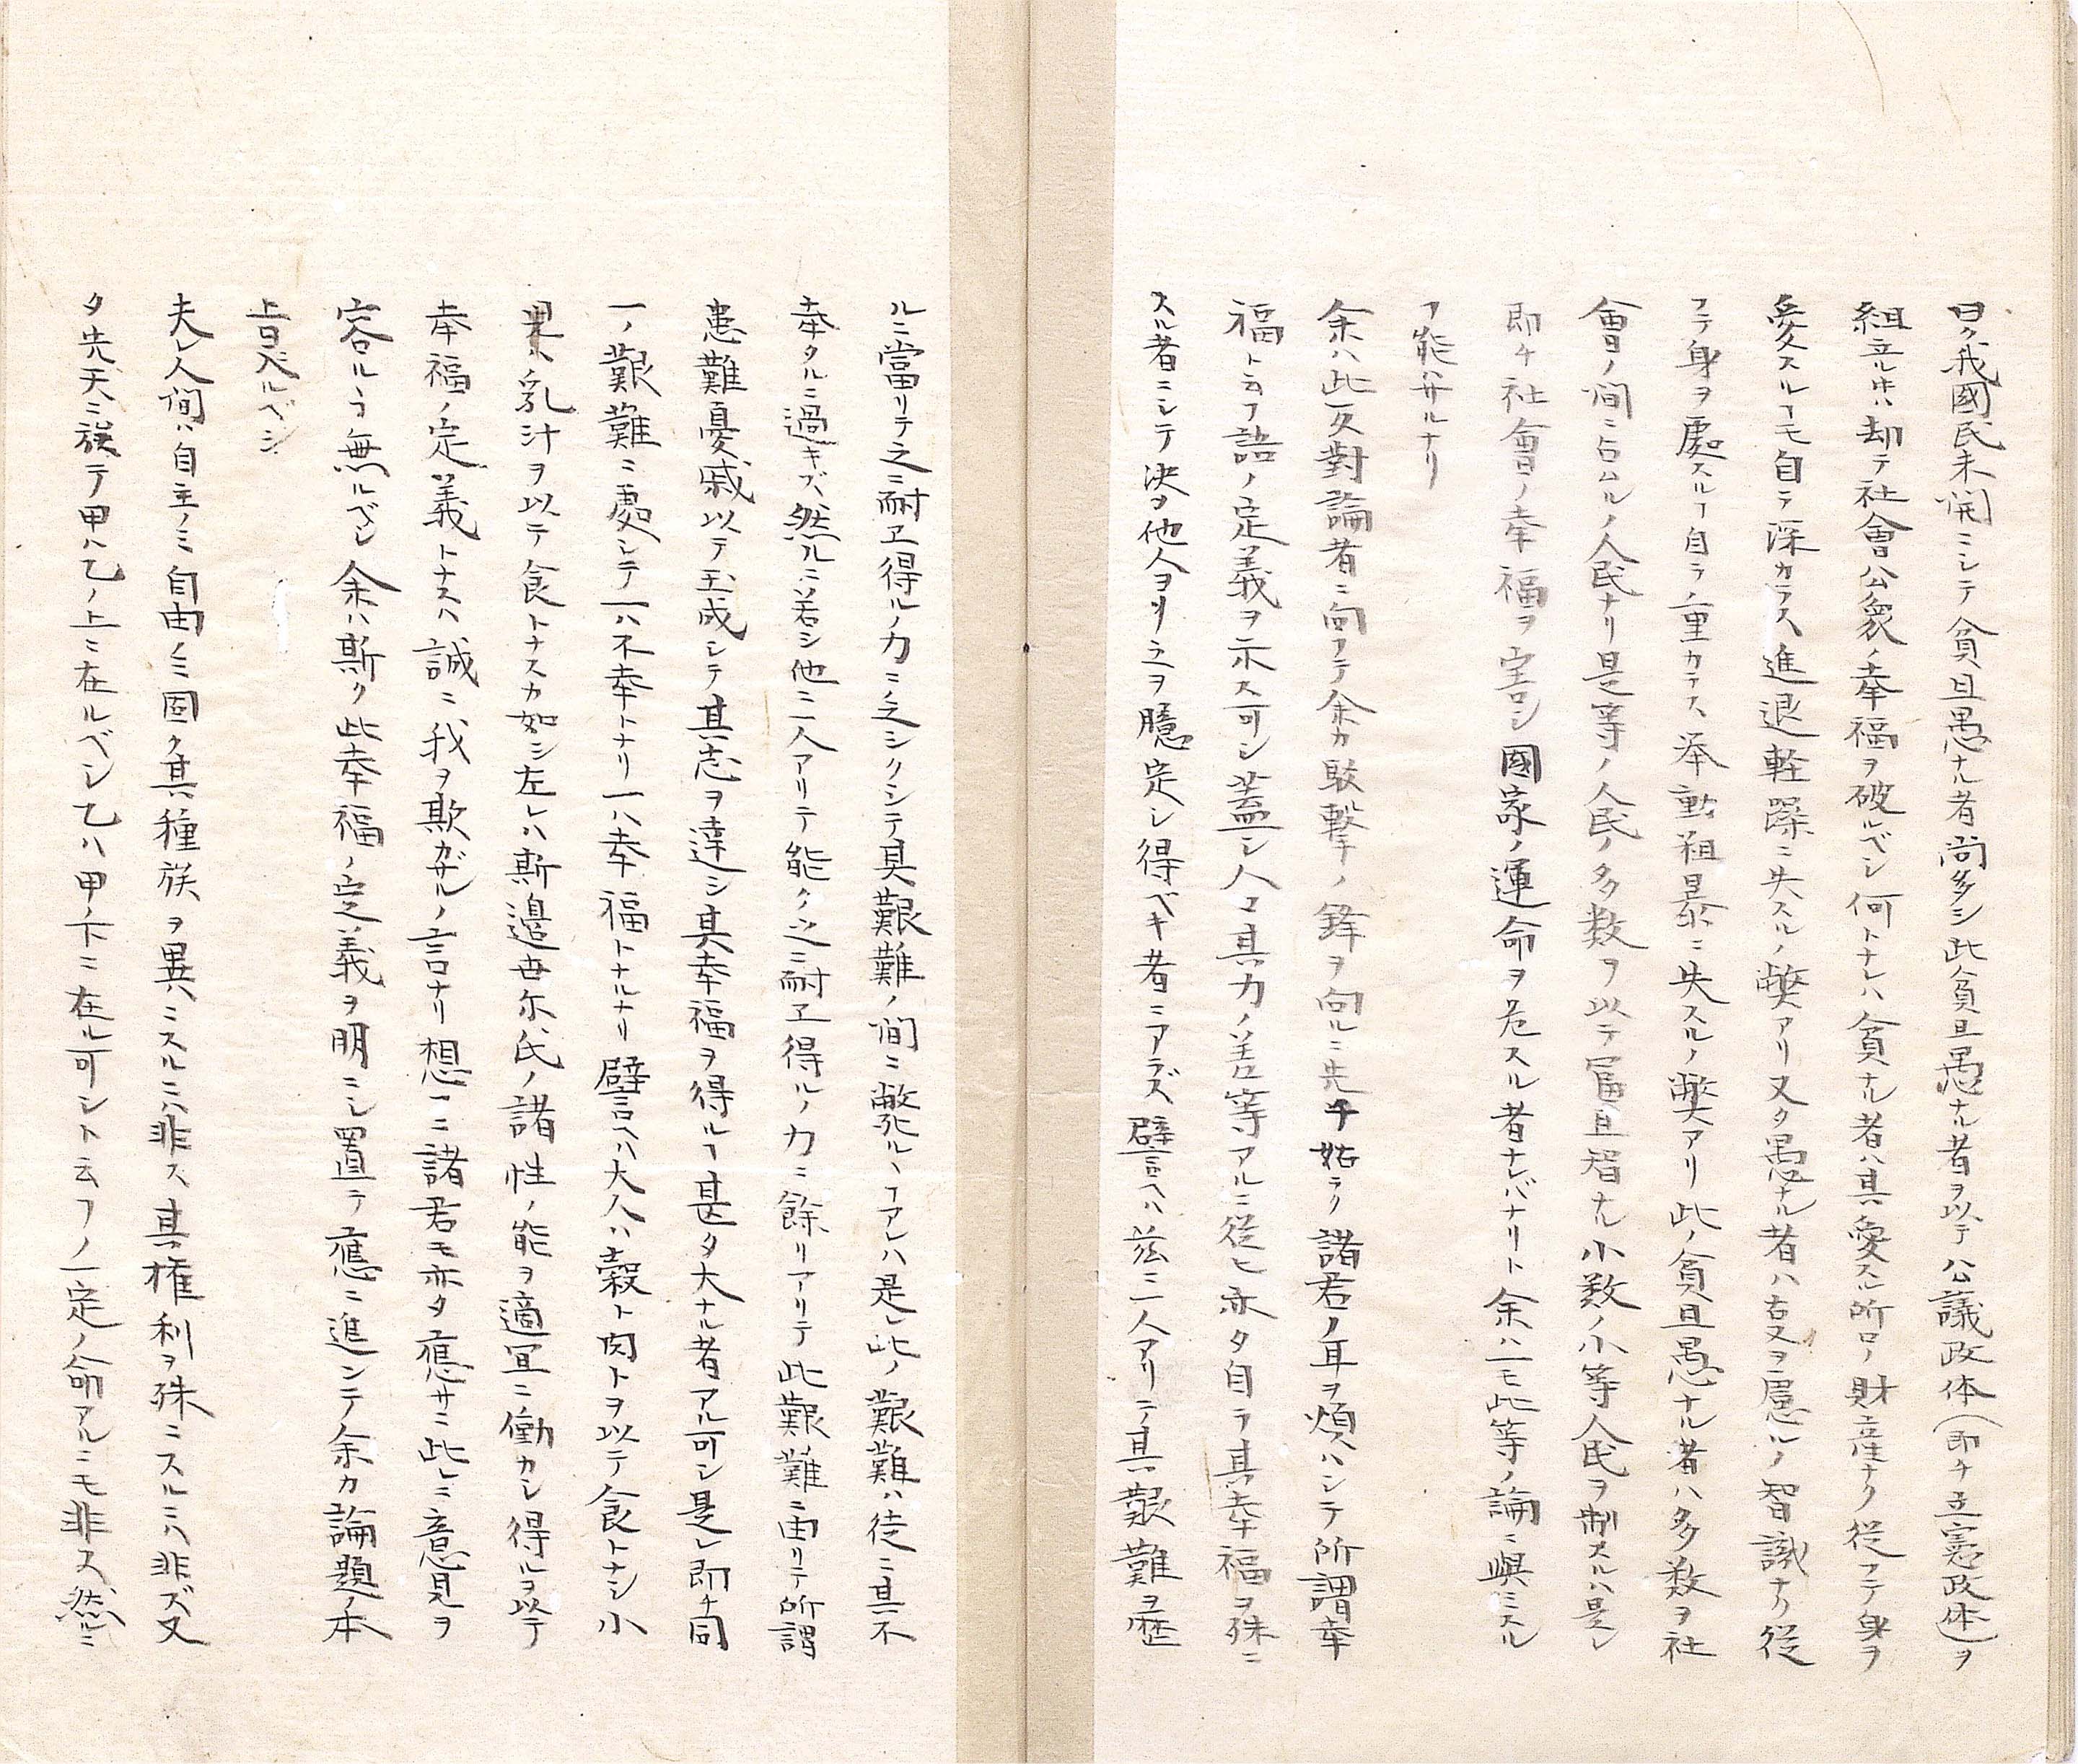 曰ク我國民未開ニシテ貧且愚ナル者尚多シ此貧且愚ナル者ヲ以テ公議政体(即チ立憲政体)ヲ
組立ル片ハ却テ社會公衆ノ幸福ヲ破ルベシ何トナレハ貧ナル者ハ其愛スル所ロノ財産ナク従フテ身ヲ
愛スルヿモ自テ深カラス進退軽躁ニ失スルノ弊アリ又タ愚ナル者ハ古又ヲ慮ルノ智識ナク従
フテ身ヲ處スルヿ自ラ重カラス举動粗暴ニ失スルノ弊アリ此ノ貧且愚ナル者ハ多数ヲ社
會ノ間ニ占ムルノ人民ナリ是等ノ人民ノ多数ヲ以テ冨且智ナル小数ノ小等人民ヲ制スルハ是レ
即チ社會ノ幸福ヲ害シ國家ノ運命ヲ危スル者ナレバナリト余ハ一モ此等ノ論ニ與ミスル
ヿ能ハサルナリ
余ハ此反對論者ニ向フテ余カ駁撃ノ鋒ヲ向ルニ先チ姑ラク諸君ノ耳ヲ煩ハシテ所謂幸
福ト云フ語ノ定義ヲ示ス可シ蓋シ人々其力ノ差等アルニ従ヒ亦タ自ラ其幸福ヲ殊ニ
スル者ニシテ決ヲ他人ヨリ之ヲ臆定シ得ベキ者ニアラズ譬ヘハ茲ニ二人アリテ其艱難ヲ歴
ルニ當リテ之ニ耐エ得ルノ力ニ乏シクシテ其艱難ノ間ニ斃ルヽヿアレハ是レ此ノ艱難ハ徒ニ其不
幸タルニ過キズ然ルニ若シ他ニ一人アリテ能ク之ニ耐エ得ルノ力ニ餘リアリテ此艱難ニ由リテ所謂
患難憂戚以テ玉成シテ其志ヲ達シ其幸福ヲ得ルヿ甚タ大ナル者アル可シ是レ即チ同
一ノ艱難ニ處シテ一ハ不幸トナリ一ハ幸福トナルナリ譬ヘハ大人ハ穀ト肉トヲ以テ食トナシ小
児ハ乳汁ヲ以テ食トナスカ如シ左レハ斯邉世尓氏ノ諸性ノ能ヲ適宜ニ働カシ得ルヲ以テ
幸福ノ定義トナスハ誠ニ我ヲ欺カザルノ言ナリ想フニ諸君モ亦タ應サニ此レニ意見ヲ
容ルヽヿ無ルベシ余ハ斯ク此幸福ノ定義ヲ明ニシ置テ應ニ進ンテ余カ論題ノ本
旨ヲ述ルベシ
夫レ人間ハ自主ノミ自由ノミ固ク其種族ヲ異ニスルニハ非ス其権利ヲ殊ニスルニハ非ズ又
タ先天ニ族テ甲ハ乙ノ上ニ在ルベシ乙ハ甲ノ下ニ在ル可シト云フノ一定ノ命アルニモ非ス然ルニ